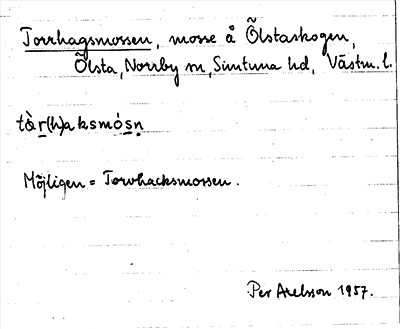 Torrhagsmossen, mosse å Õlstaskogen,
Õlsta, Norrby sn, Simtuna hd, Västm. l.
tàr̲(h)aksmós̲ṇ
Möjligen = Torvhacksmossen.
Per Axelsson 1957.